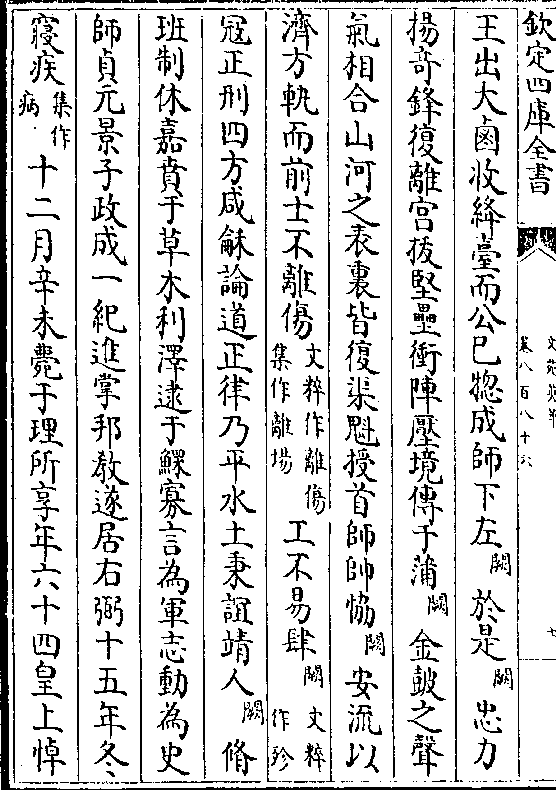 欽定四庫全書
文苑英華
卷八百八十六
七
王出大鹵收絳臺而公已惣成師下左闕於是闕忠力
揚竒鋒復離宫拔堅壘衝陣壓境傅于蒲闕金皷之聲
氣相合山河之表裏皆復渠魁授首師帥恊闕安流以
濟方軌而前士不離傷文粹作離傷集作離場工不易肆闕文粹作珍
冠正刑四方咸龢論道正律乃平水土秉誼靖人闕脩
班制休嘉賁于草木利澤逮于鰥寡言為軍志動為史
師貞元景子政成一紀進掌邦教遂居右弼十五年冬
寢疾集作病十二月辛未薨于理所享年六十四皇上悼